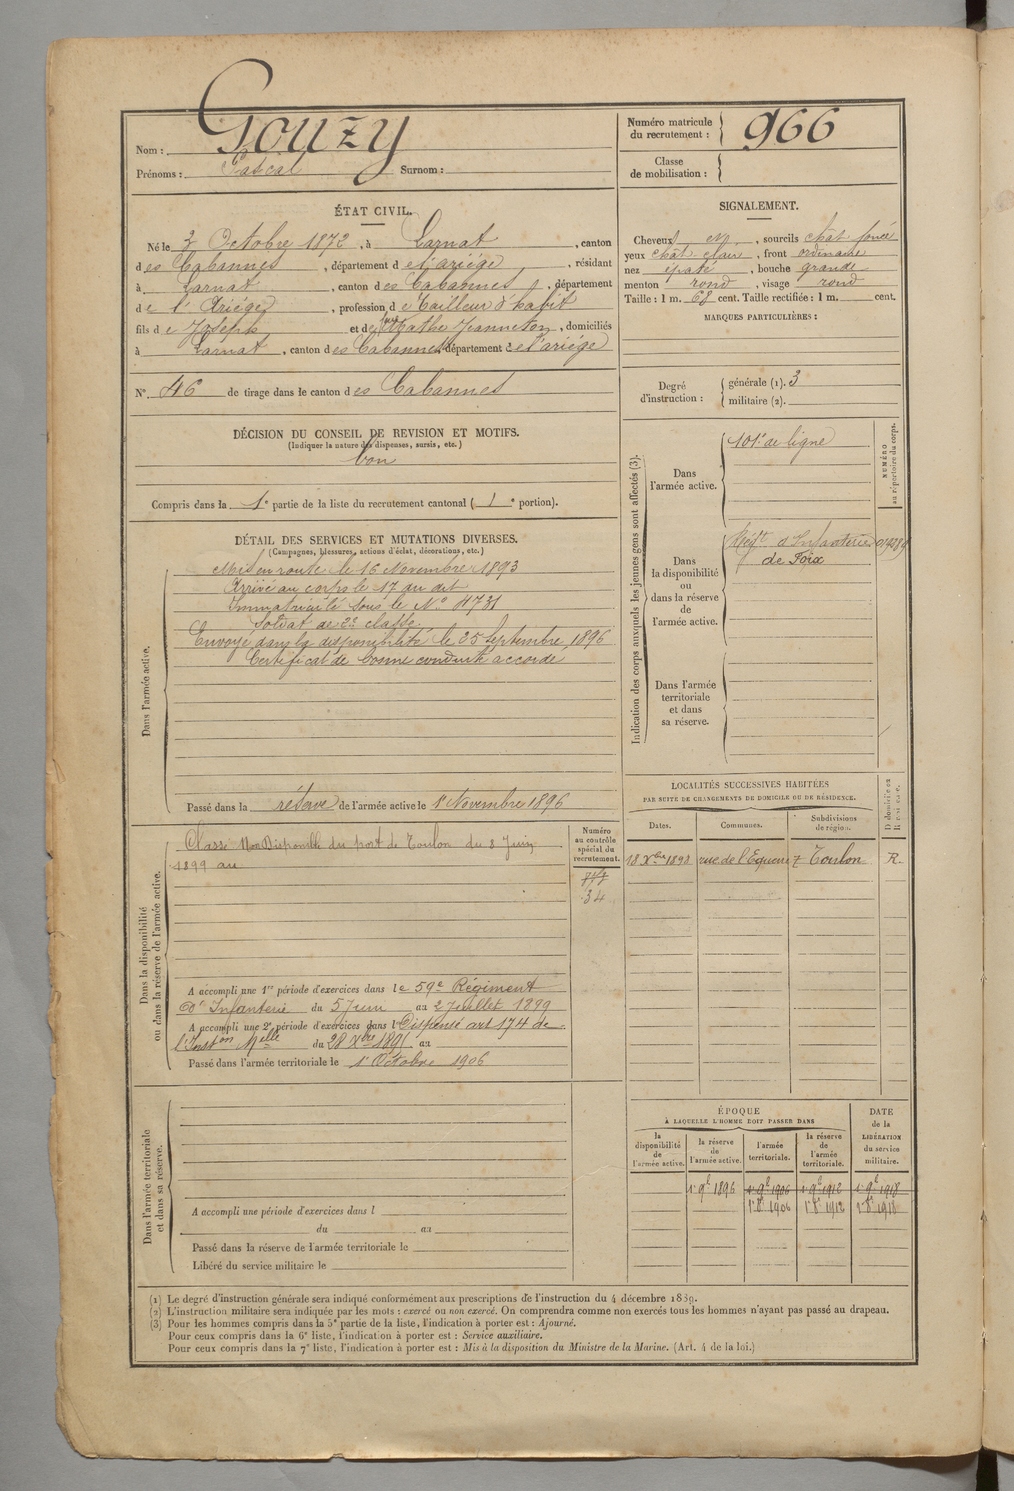 Nom : Gouzy
Prénoms : Pascal Surnom :
Numéro matricule du recrutement : 966
Classe de mobilisation :
ÉTAT CIVIL.
Né le 3 Octobre 1872, à Larnat, canton
des Cabannes, département de l'ariége, résidant
à Larnat, canton des Cabannes, département
de l'Ariége, profession de Tailleur d'habit
fils de Joseph et de Mathe Jeanneton, domiciliés
à Larnat, canton des Cabannes, département de l'ariége
N° 46 de tirage dans le canton des Cabannes
SIGNALEMENT.
Cheveux et, sourcils chât foncé
yeux chât clair, front ordinaire
nez épaté, bouche grande
menton rond, visage rond
Taille : 1 m. 68 cent. Taille rectifiée : 1 m. cent.
MARQUES PARTICULIÈRES :
Degré d'instruction : générale (1). 3
militaire (2).
DÉCISION DU CONSEIL DE REVISION ET MOTIFS.
(Indiquer la nature des dispenses, sursis, etc.)
bon
Compris dans la 1e partie de la liste du recrutement cantonal (1e portion).
DÉTAIL DES SERVICES ET MUTATIONS DIVERSES.
(Campagnes, blessures, actions d'éclat, décorations, etc.)
Dans l'armée active.
Mis en route le 16 Novembre 1893
Arrivé au corps le 17 du dit
Immatriculé sous le N° 4731
Soldat de 2e classe
Envoyé dans la disponibilité le 25 Septembre 1896
Certificat de bonne conduite accordé
Passé dans la réserve de l'armée active le 1r Novembre 1896
Indication des corps auxquels les jeunes gens sont affectés (3).
NUMÉRO au répertoire du corps.
Dans l'armée active.
101e de ligne
Dans la disponibilité ou dans la réserve de l'armée active.
Régt d'Infanterie
de Foix
Dans l'armée territoriale et dans sa réserve.
Dans la disponibilité ou dans la réserve de l'armée active.
Numéro au contrôle spécial du recrutement.
Classé Non Disponible du port de Toulon du 8 Juin
1899 au
34
A accompli une 1re période d'exercices dans le 59e Régiment
d'Infanterie du 5 Juin au 2 Juillet 1899
A accompli une 2e période d'exercices dans l Dispensé art 174 de
l'Inston Melle du 28 Xbre 189 au
Passé dans l'armée territoriale le 1r Octobre 1906
LOCALITÉS SUCCESSIVES HABITÉES
PAR SUITE DE CHANGEMENTS DE DOMICILE OU DE RÉSIDENCE.
Dates. Communes. Subdivisions de région. D domicile ou R résidence.
18 Xbre 1898 rue de l'Equerre 7 Toulon R.
Dans l'armée territoriale et dans sa réserve.
A accompli une période d'exercices dans l
du au
Passé dans la réserve de l'armée territoriale le
Libéré du service militaire le
ÉPOQUE
À LAQUELLE L'HOMME DOIT PASSER DANS
la disponibilité de l'armée active. la réserve de l'armée active. l'armée territoriale. la réserve de l'armée territoriale. DATE de la LIBÉRATION du service militaire.
1r 9bre 1896 1r 9bre 1906 1r 9bre 1912 1r 9bre 1918
1r 8bre 1906 1r 8bre 1912 1r 8bre 1918
(1) Le degré d'instruction générale sera indiqué conformément aux prescriptions de l'instruction du 4 décembre 1889.
(2) L'instruction militaire sera indiquée par les mots : exercé ou non exercé. On comprendra comme non exercés tous les hommes n'ayant pas passé au drapeau.
(3) Pour les hommes compris dans la 5e partie de la liste, l'indication à porter est : Ajourné.
Pour ceux compris dans la 6e liste, l'indication à porter est : Service auxiliaire.
Pour ceux compris dans la 7e liste, l'indication à porter est : Mis à la disposition du Ministre de la Marine. (Art. 4 de la loi.)